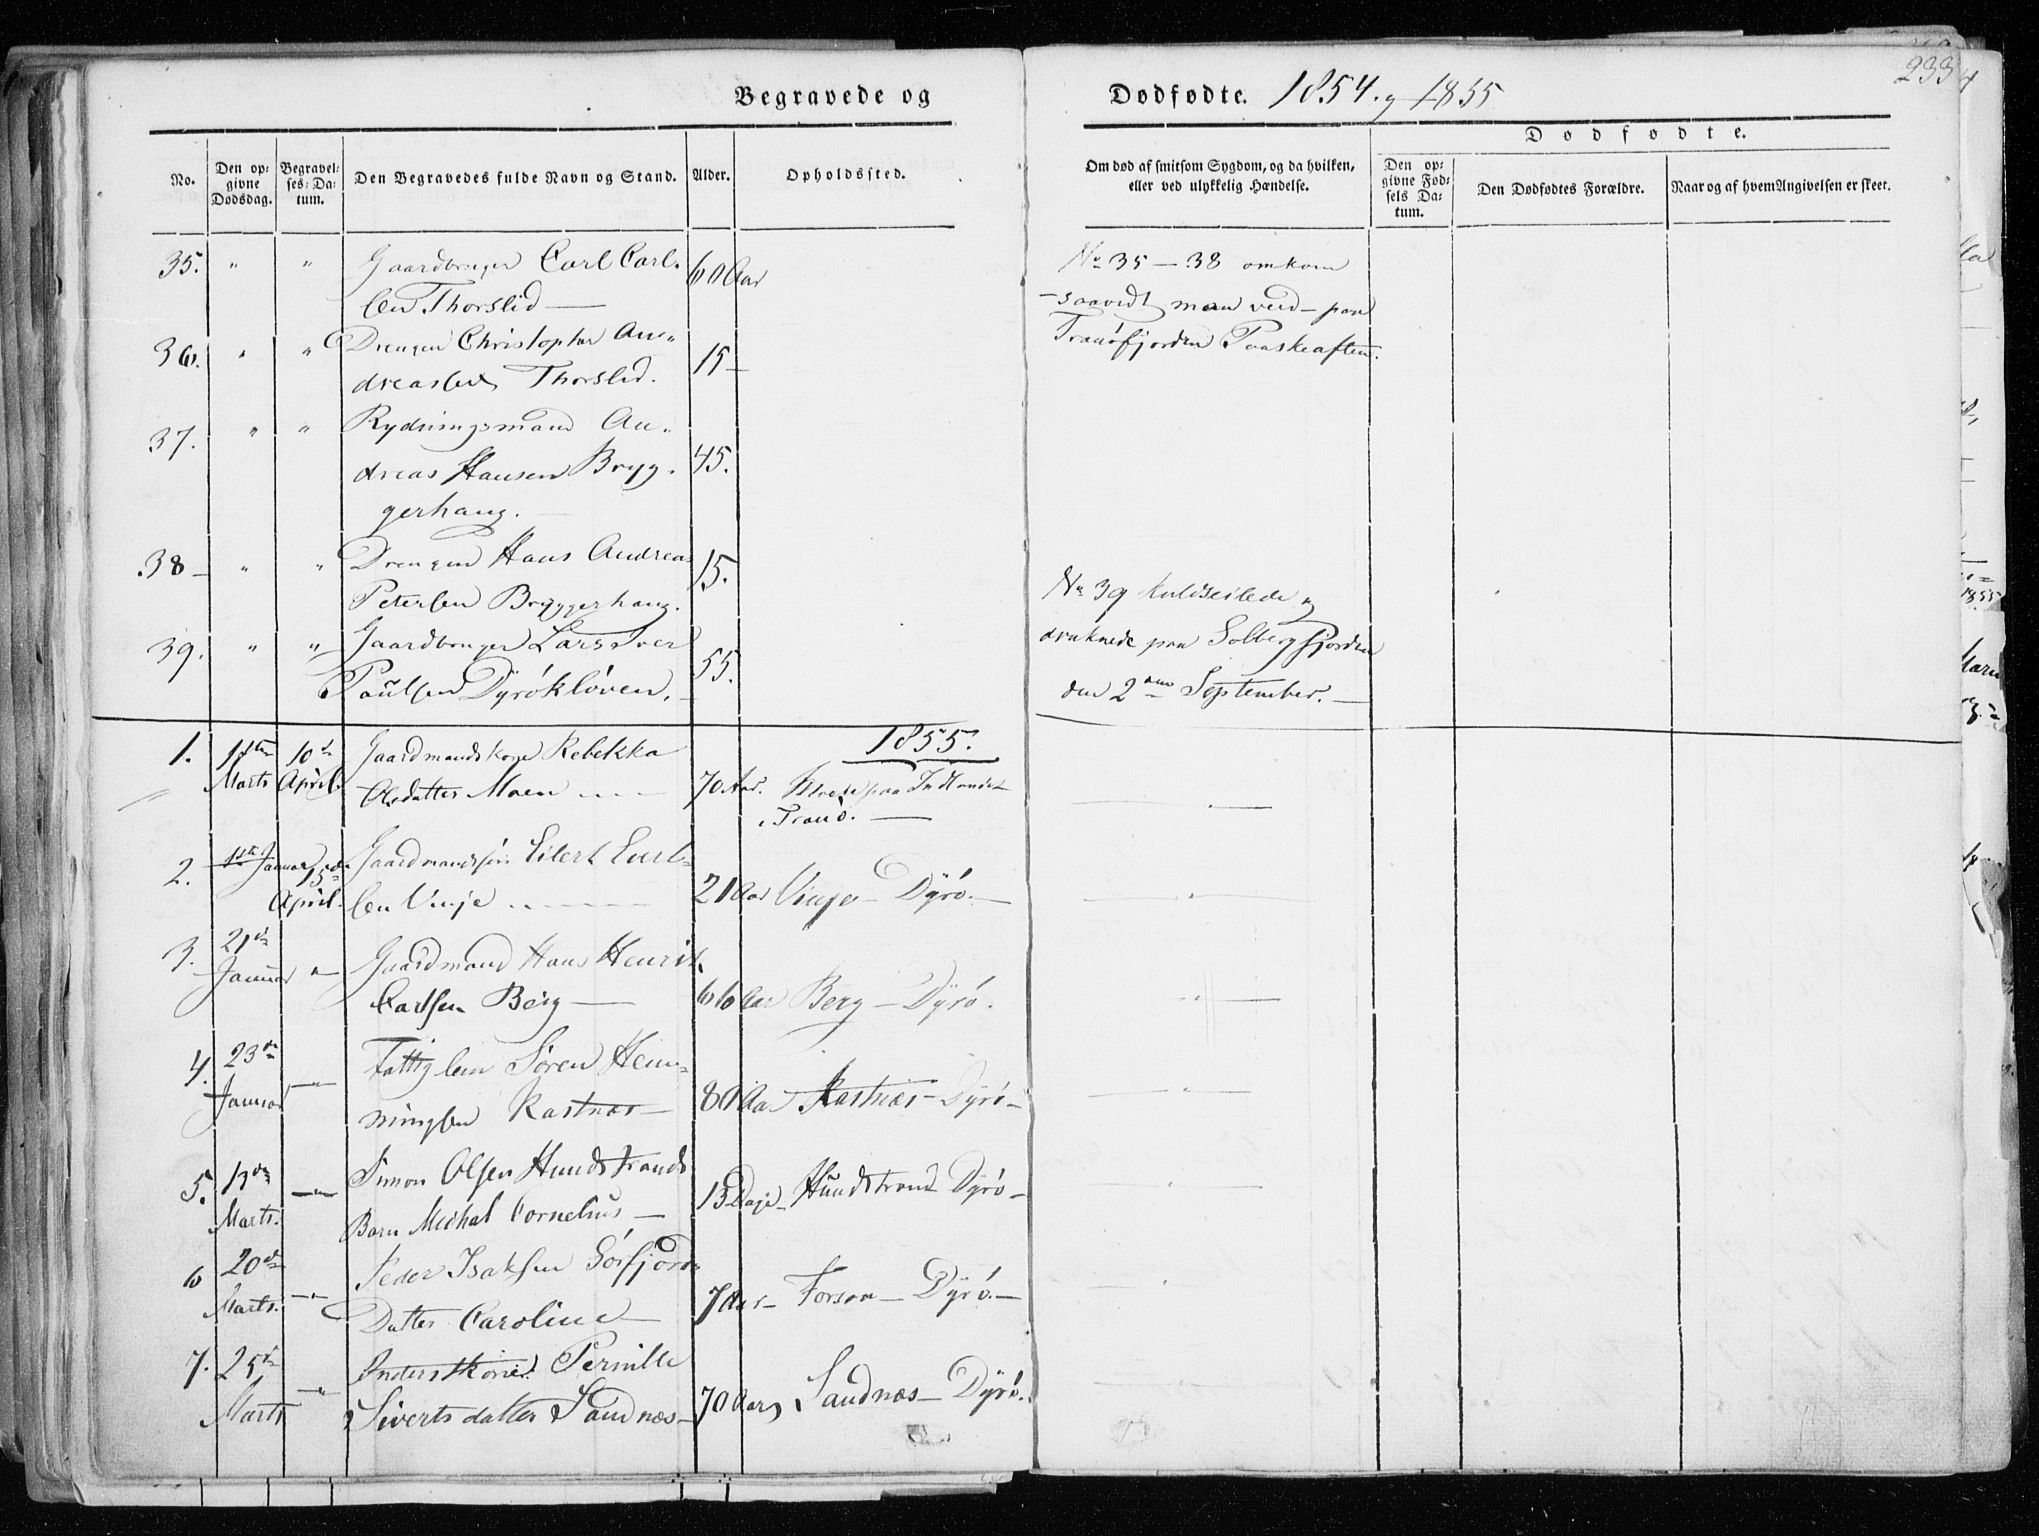 233
Begravede og Dødfødte. 1854. og 1855
Dødfødte.
No.
Den op-
givne
Dødsdag.
Begravel-
ses-Da-
tum.
Den Begravedes fulde Navn og Stand.
Alder.
Opholdssted.
Om død af smitsom Sygdom, og da hvilken,
eller ved ulykkelig Hændelse.
Den op-
givne Fød-
sels Da-
tum.
Den Dødfødtes Forældre.
Naar og af hvem Angivelsen er skeet.
35. " " Gaardbruger Carl Carl- 60 Aar
sen Thorslid —
No 35 — 38 omkom
- saavidt man veed - paa
Tranøfjorden Paaskeaften.
36. " " Drengen Christopher An- 15 —
dreassen Thorslid.
37. " " Rydningsmand An- 45.
dreas Hansen Bryg-
gerhaug.
38 — " " Drengen Hans Andreas 15.
Petersen Bryggerhaug.
39. " " Gaardbruger Lars Iver 55.
Paulsen Dyrøkløven.
No 39 kuldseilede og
druknede paa Solbergfjorden
den 2den September. —
1855.
1. 17de Marts 10de April Gaardmandskone Rebekka
Olsdatter Moen 70 Aar. Moen paa Indlandet
i Tranø. —
2. 1ste Januar 15de April. Gaardmandssøn Eilert Carl-
sen Vinje 21 Aar Vinje — Dyrø. —
3. 21de Januar " Gaardmand Hans Henrik
Carlsen Berg — 66 Aar Berg — Dyrø.
4. 23de Januar " Fattiglem Søren Hem-
mingsen Kastnæs — 80 Aar Kastnæs — Dyrø —
5. 13de Marts. " Simon Olsen Hundstrands
Barn Michal Cornelius — 13 Dage — Hundstrand Dyrø —
6 20de Marts. " Peder Isaksen Sørfjord
Datter Caroline 7 Aar — Forsaa — Dyrø. —
7. 25de Marts " Inderstkone Pernille
Sivertsdatter Sandnæs — 70 Aar, Sandnæs — Dyrø.